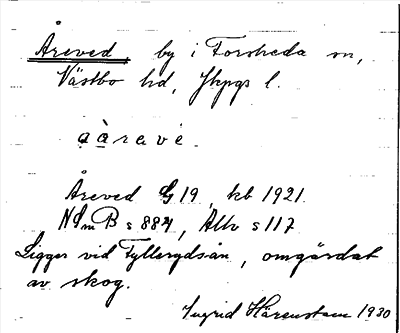 Åreved, by i Forsheda sn,
Västbo hd, Jkpgs l.
a à r a v è.
Åreved G 19, kb 1921.
NSmB s 884, Allv s 117
Ligger vid Fyllerydsån, omgärdat
av skog.
Ingrid Härenstam 1930